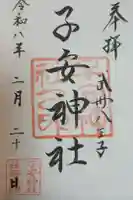 奉拝
武州八王子
子安神社
令和八年二月二十
日